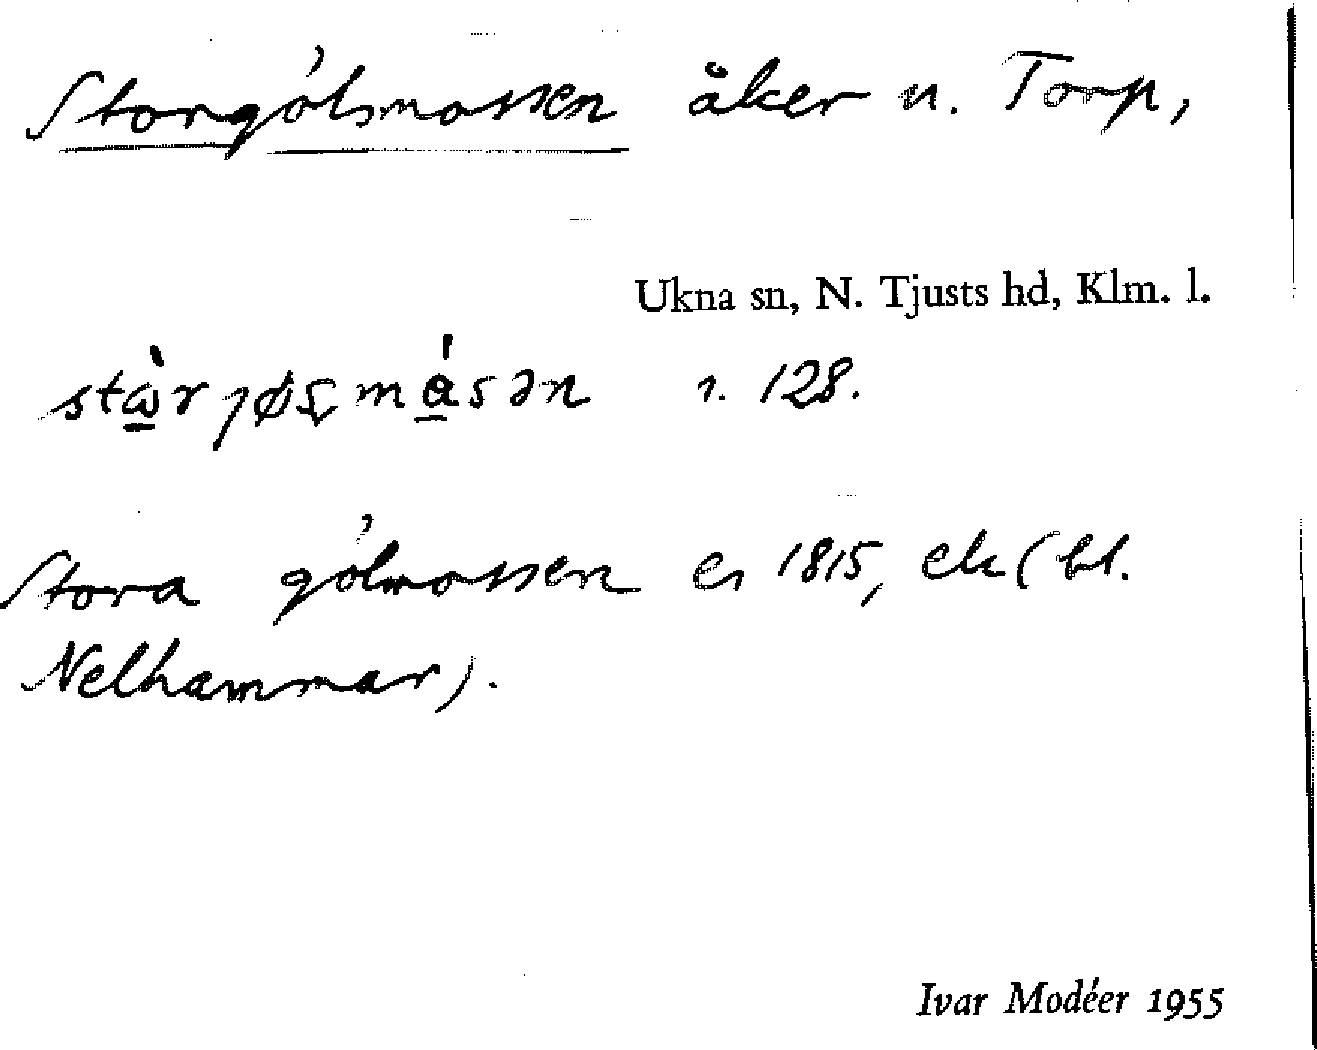 Storgölsmossen åker n. Torp,
Ukna sn, N. Tjusts hd, Klm. l.
128.
Stora gölmossen 1815, ek (bl.
Nelhammar).
Ivar Modéer 1955